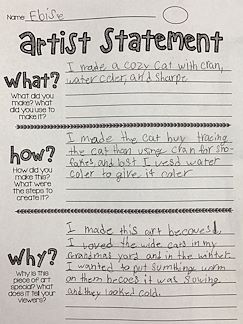 Name Ebise
Artist Statement
What?
What did you
make? What did
you use to
make it?
I made a cozy cat with cran,
water coler, and sharpe
how?
How did you
make this?
What were
the steps to
create it?
I made the cat buy tracing
the cat than using cran for sno-
fakes, and last I uesd water
coler to give it coler
Why?
Why is this
piece of art
special? What
does it tell your
viewers?
I made this art becouse I,
I loved the wide cats in my
Grandmas yard and in the winter
I wanted to put sumthing worm
on them becoes it was snowing
and they looked cold.